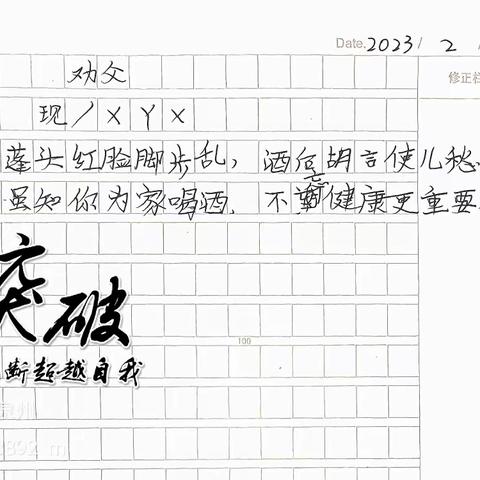 Date. 2023 / 2 /
修正栏
劝父
现 / X Y X
蓬头红脸脚步乱，酒后胡言使儿愁。
虽知你为家喝酒，不忘健康更重要
100
突破
断超越自我
892 m